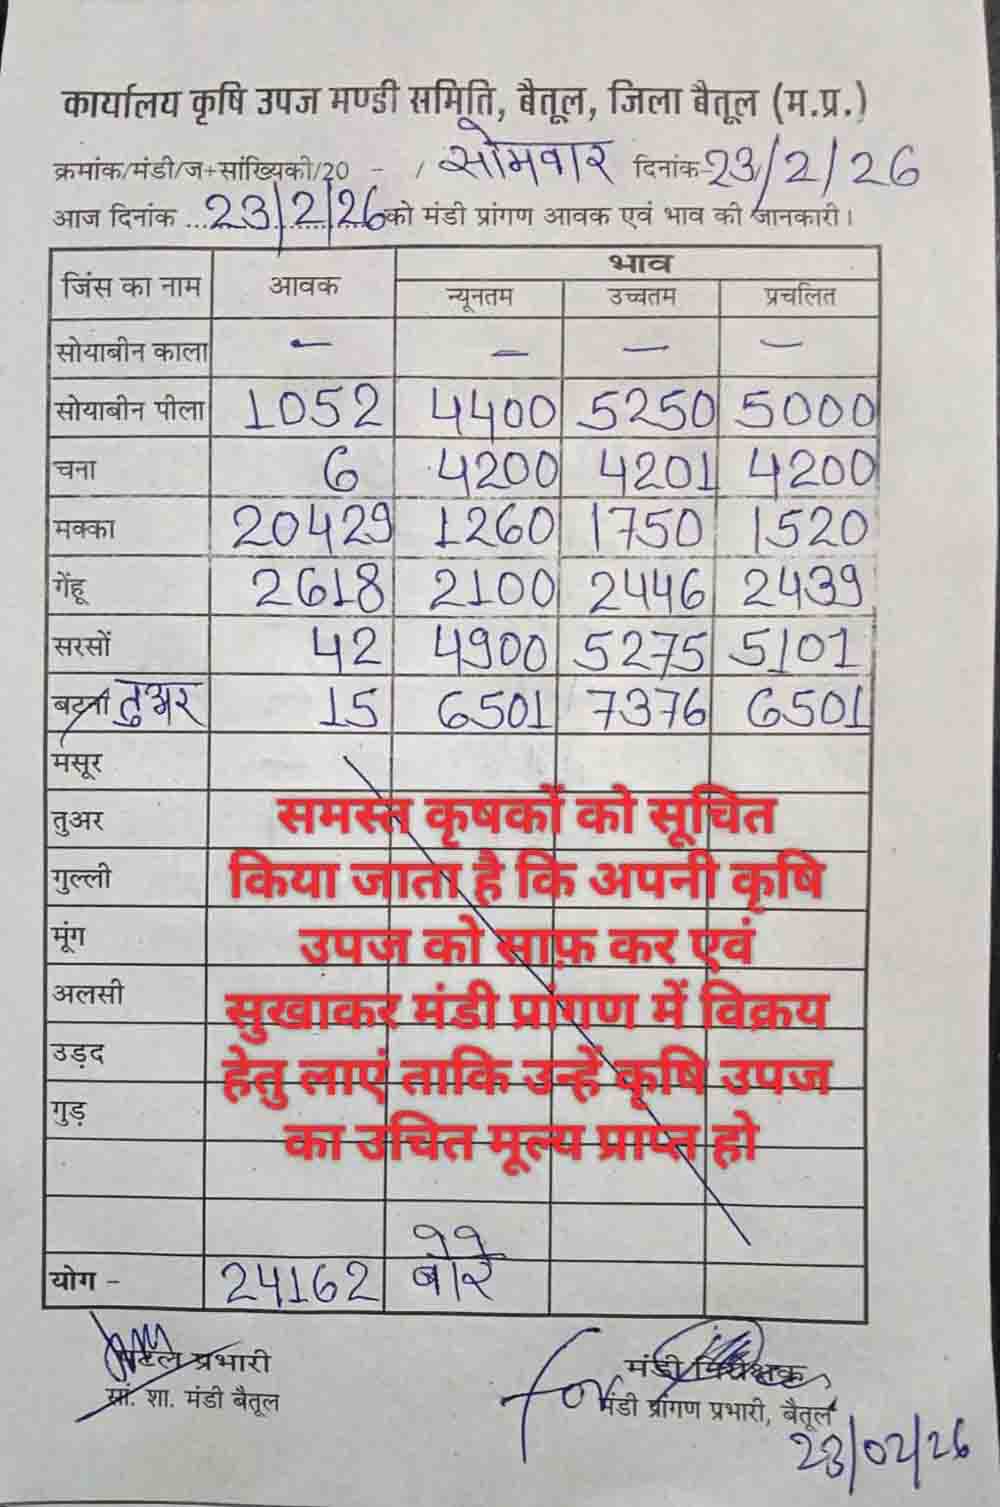 कार्यालय कृषि उपज मण्डी समिति, बैतूल, जिला बैतूल (म.प्र.)
क्रमांक/मंडी/ज+सांख्यिकी/20 - / सोमवार दिनांक-23/2/26
आज दिनांक ...23/2/26को मंडी प्रांगण आवक एवं भाव की जानकारी।
जिंस का नाम आवक भाव
न्यूनतम उच्चतम प्रचलित
सोयाबीन काला - - - -
सोयाबीन पीला 1052 4400 5250 5000
चना 6 4200 4201 4200
मक्का 20429 1260 1750 1520
गेंहू 2618 2100 2446 2439
सरसों 42 4900 5275 5101
बटना तुअर 15 6501 7376 6501
मसूर
तुअर
गुल्ली
मूंग
अलसी
उड़द
गुड़
समस्त कृषकों को सूचित
किया जाता है कि अपनी कृषि
उपज को साफ़ कर एवं
सुखाकर मंडी प्रांगण में विक्रय
हेतु लाएं ताकि उन्हें कृषि उपज
का उचित मूल्य प्राप्त हो
योग - 24162 बोरे
प्रभारी
सां. शा. मंडी बैतूल
मंडी निरीक्षक
for मंडी प्रांगण प्रभारी, बैतूल
23/02/26